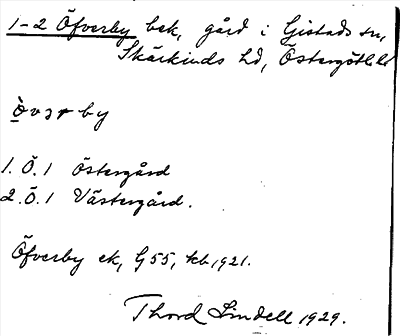 1-2 Öfverby bek, gård i Gistads sn,
Skärkinds hd, Östergötl. l
òvərby
1. Ö. 1 Östergård
2. Ö. 1 Västergård.
Öfverby ek, G55, kb 1921.
Thord Lindell 1929.